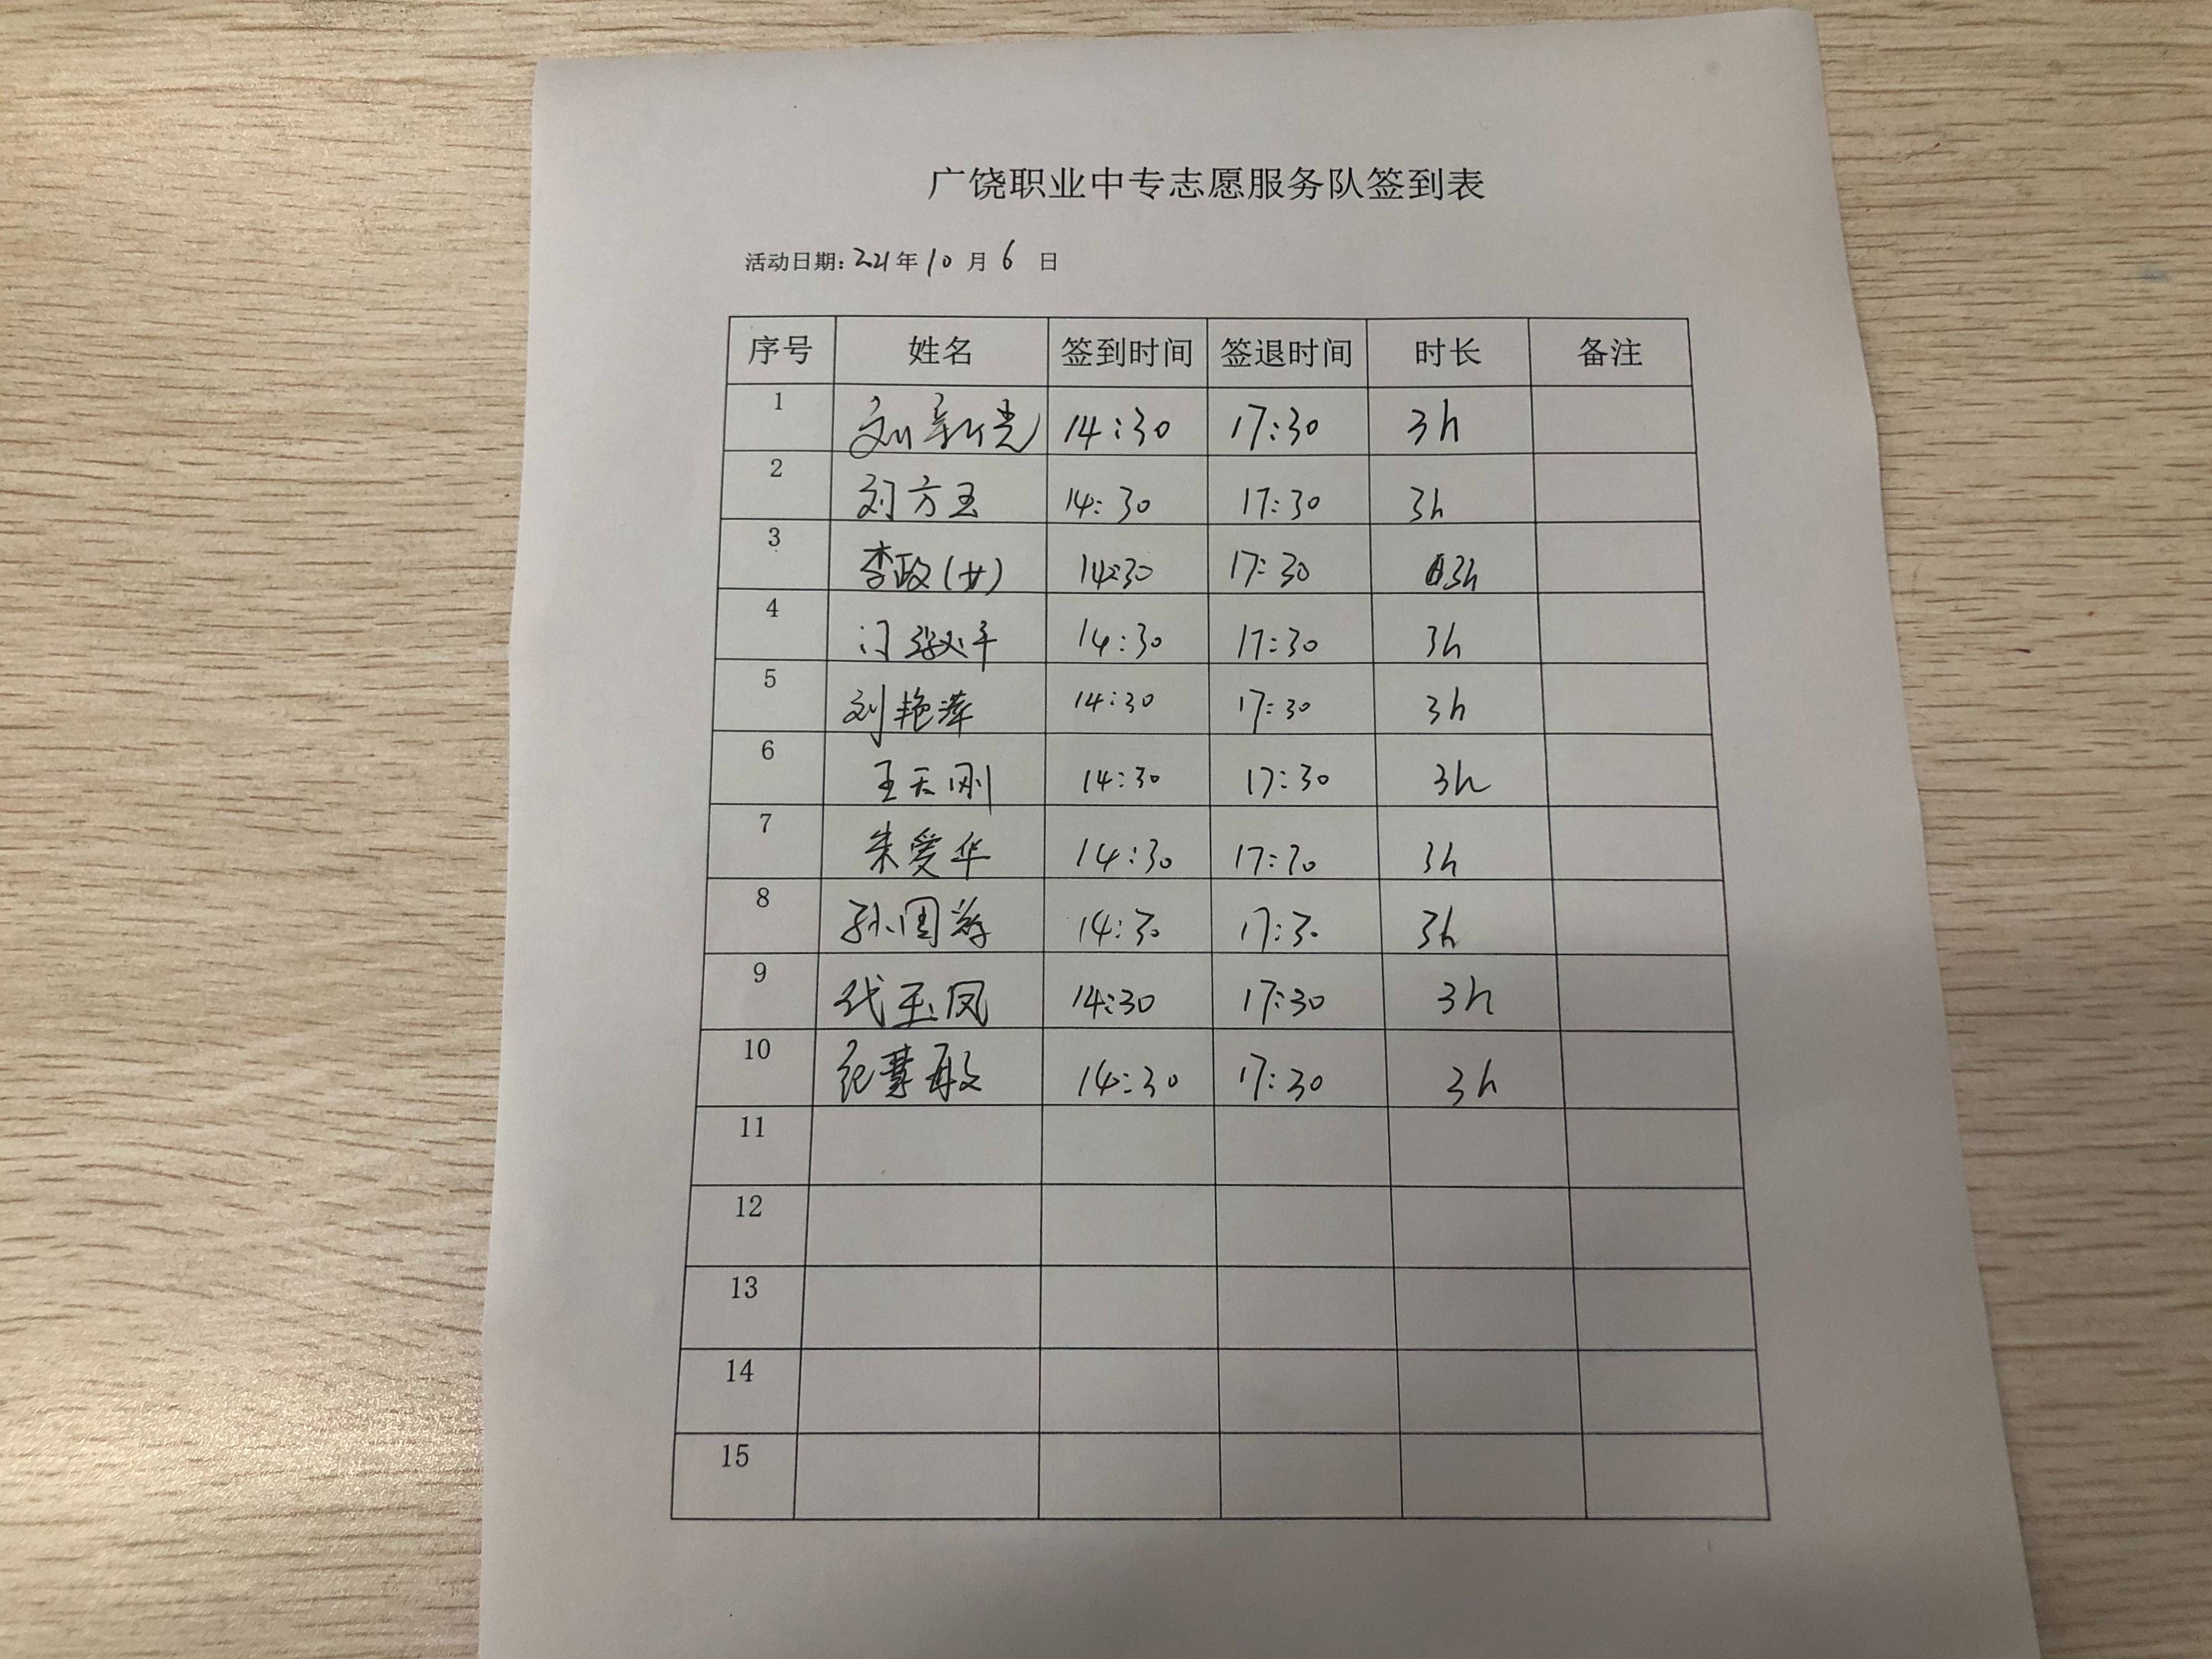 广饶职业中专志愿服务队签到表
活动日期: 2021年 10 月 6 日
序号 姓名 签到时间 签退时间 时长 备注
1 刘新光 14:30 17:30 3h
2 刘方玉 14:30 17:30 3h
3 李政(女) 14:30 17:30 3h
4 14:30 17:30 3h
5 刘艳萍 14:30 17:30 3h
6 王天刚 14:30 17:30 3h
7 朱爱华 14:30 17:30 3h
8 孙国 14:30 17:30 3h
9 代玉凤 14:30 17:30 3h
10 纪慧敏 14:30 17:30 3h
11
12
13
14
15